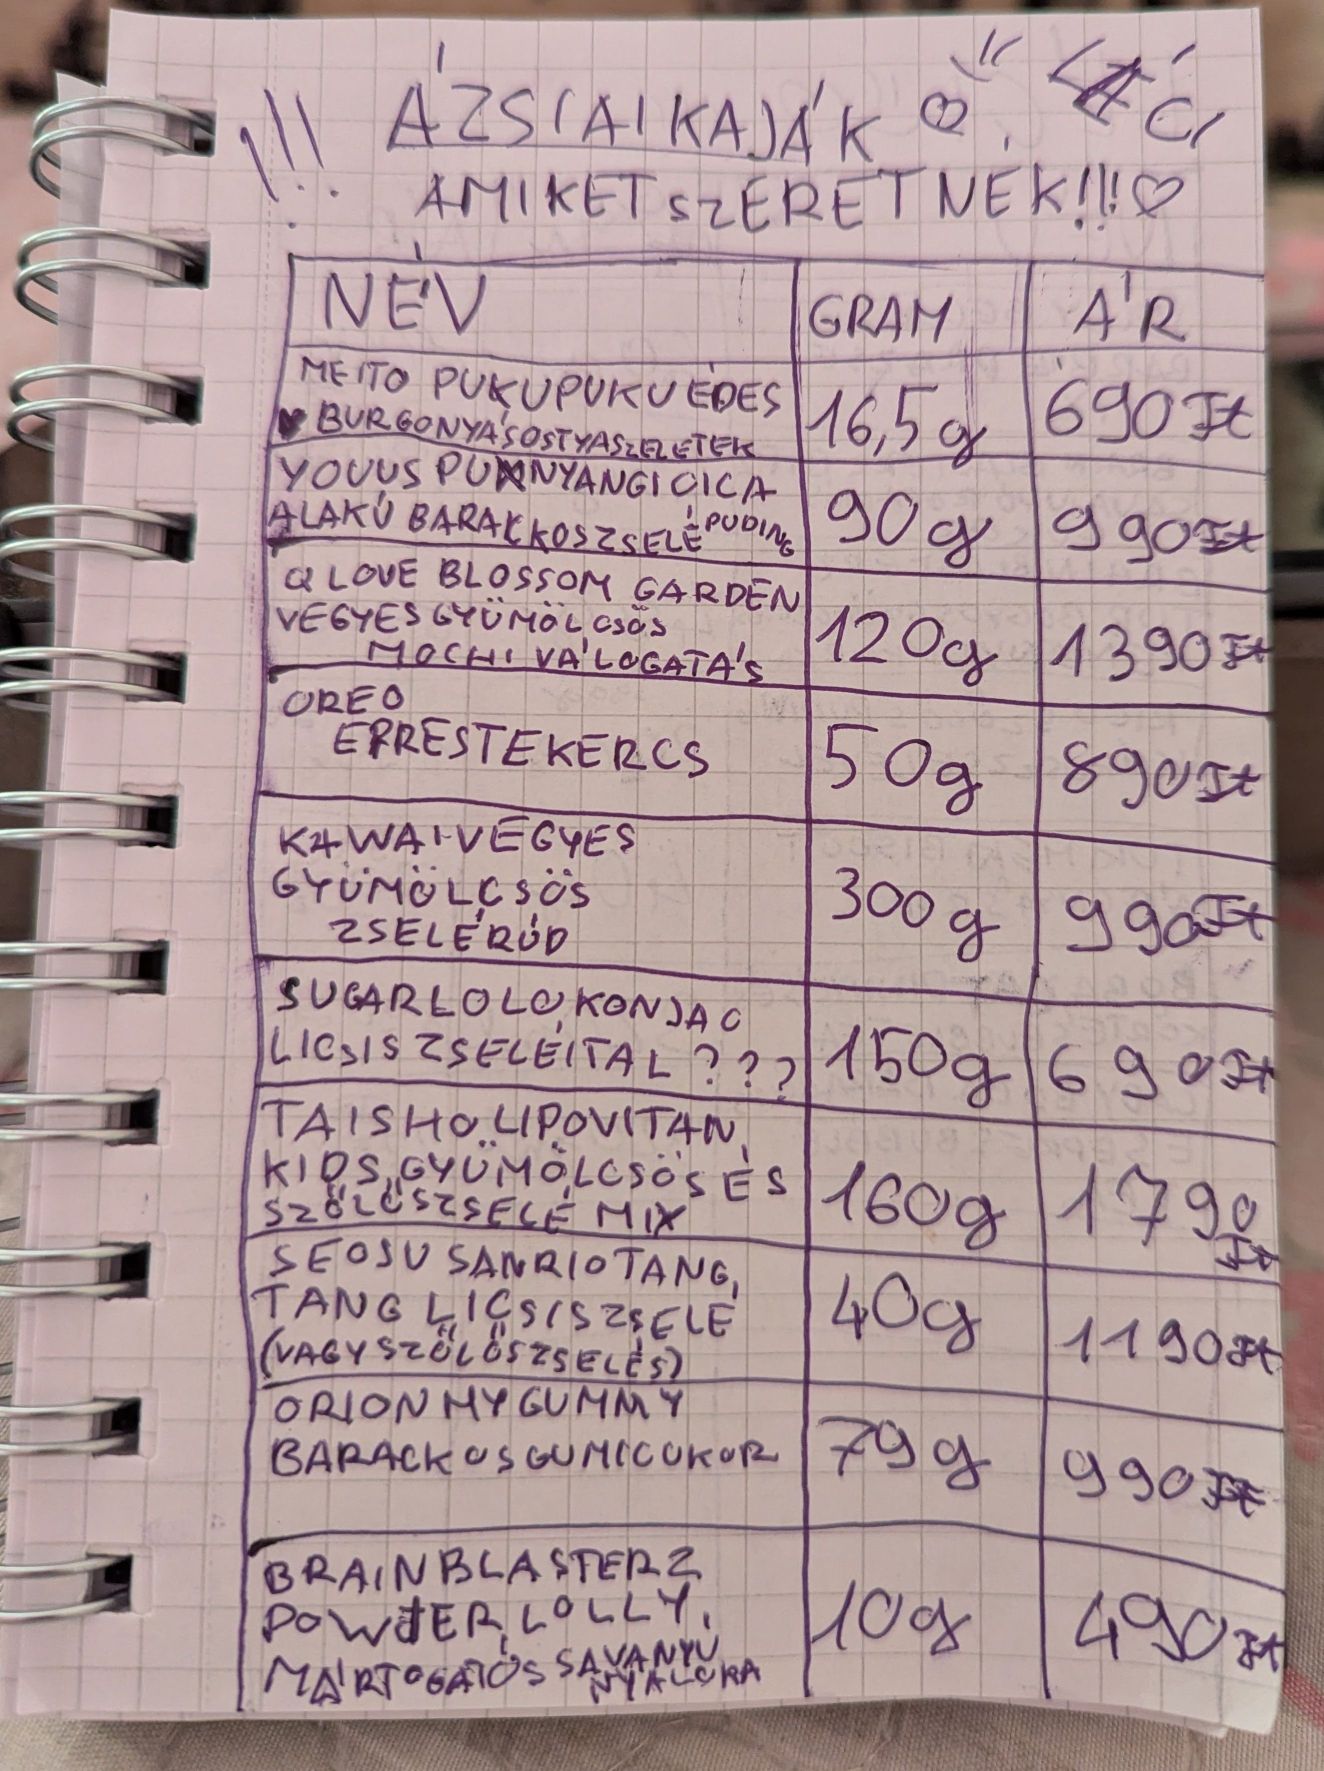 !!! ÁZSIAI KAJÁK LACI
AMIKET SZERETNÉK!!!♡
NÉV GRAM ÁR
MEITO PUKUPUKU ÉDES
BURGONYÁS OSTYASZELETEK 16,5g 690 Ft
YOUUS PUNNYANGI CICA
ALAKÚ BARACKOS ZSELÉ PUDING 90g 990 Ft
Q LOVE BLOSSOM GARDEN
VEGYES GYÜMÖLCSÖS
MOCHI VÁLOGATÁS 120g 1390 Ft
OREO
EPRES TEKERCS 50g 890 Ft
KAWAI VEGYES
GYÜMÖLCSÖS
ZSELÉRÚD 300g 990 Ft
SUGARLOLO KONJAC
LICSIS ZSELÉITAL ??? 150g 690 Ft
TAISHO LIPOVITAN
KIDS GYÜMÖLCSÖS ÉS
SZŐLŐS ZSELÉ MIX 160g 1790 Ft
SEOJU SANRIO TANG,
TANG LICSIS ZSELÉ
(VAGY SZŐLŐS ZSELÉS) 40g 1190 Ft
ORION MY GUMMY
BARACKOS GUMICUKOR 79g 990 Ft
BRAIN BLASTERZ
POWDER LOLLY,
MÁRTOGATÓS SAVANYÚ
NYALÓKA 10g 490 Ft